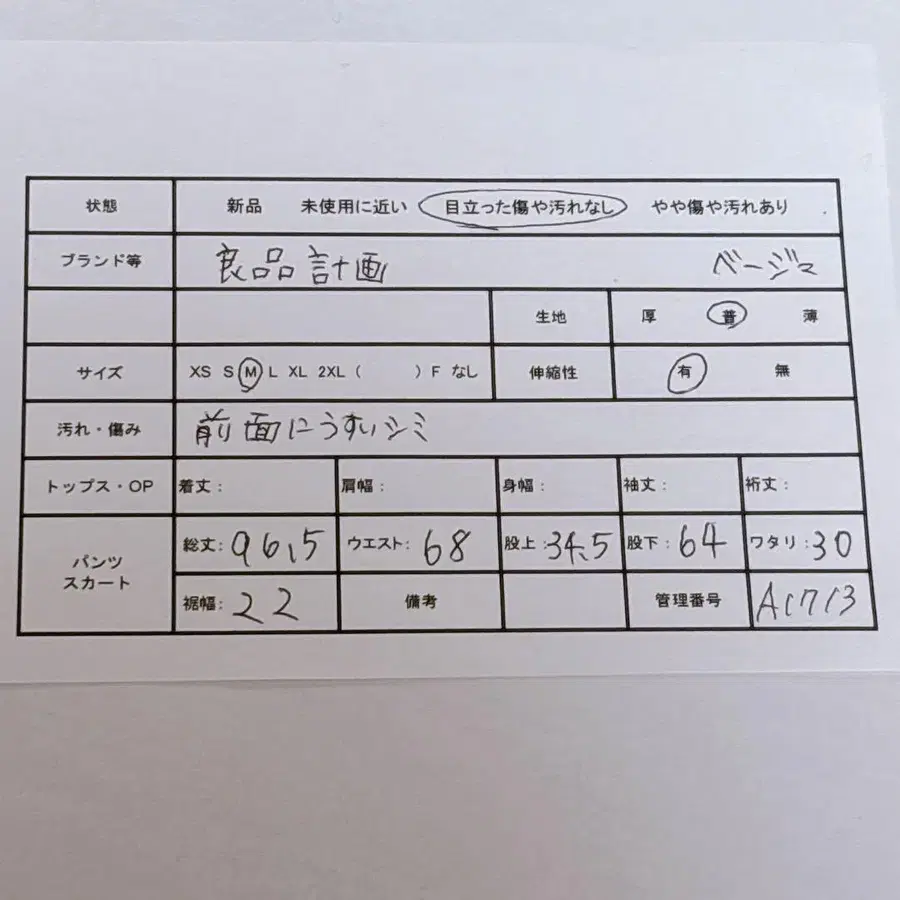 状態 新品 未使用に近い 目立った傷や汚れなし やや傷や汚れあり
ブランド等 良品計画 ベージュ
生地 厚 普 薄
サイズ XS S M L XL 2XL ( ) F なし 伸縮性 有 無
汚れ・傷み 前面にうすいシミ
トップス・OP 着丈: 肩幅: 身幅: 袖丈: 裄丈:
パンツ スカート 総丈: 96.5 ウエスト: 68 股上: 34.5 股下: 64 ワタリ: 30
裾幅: 22 備考 管理番号 A1713